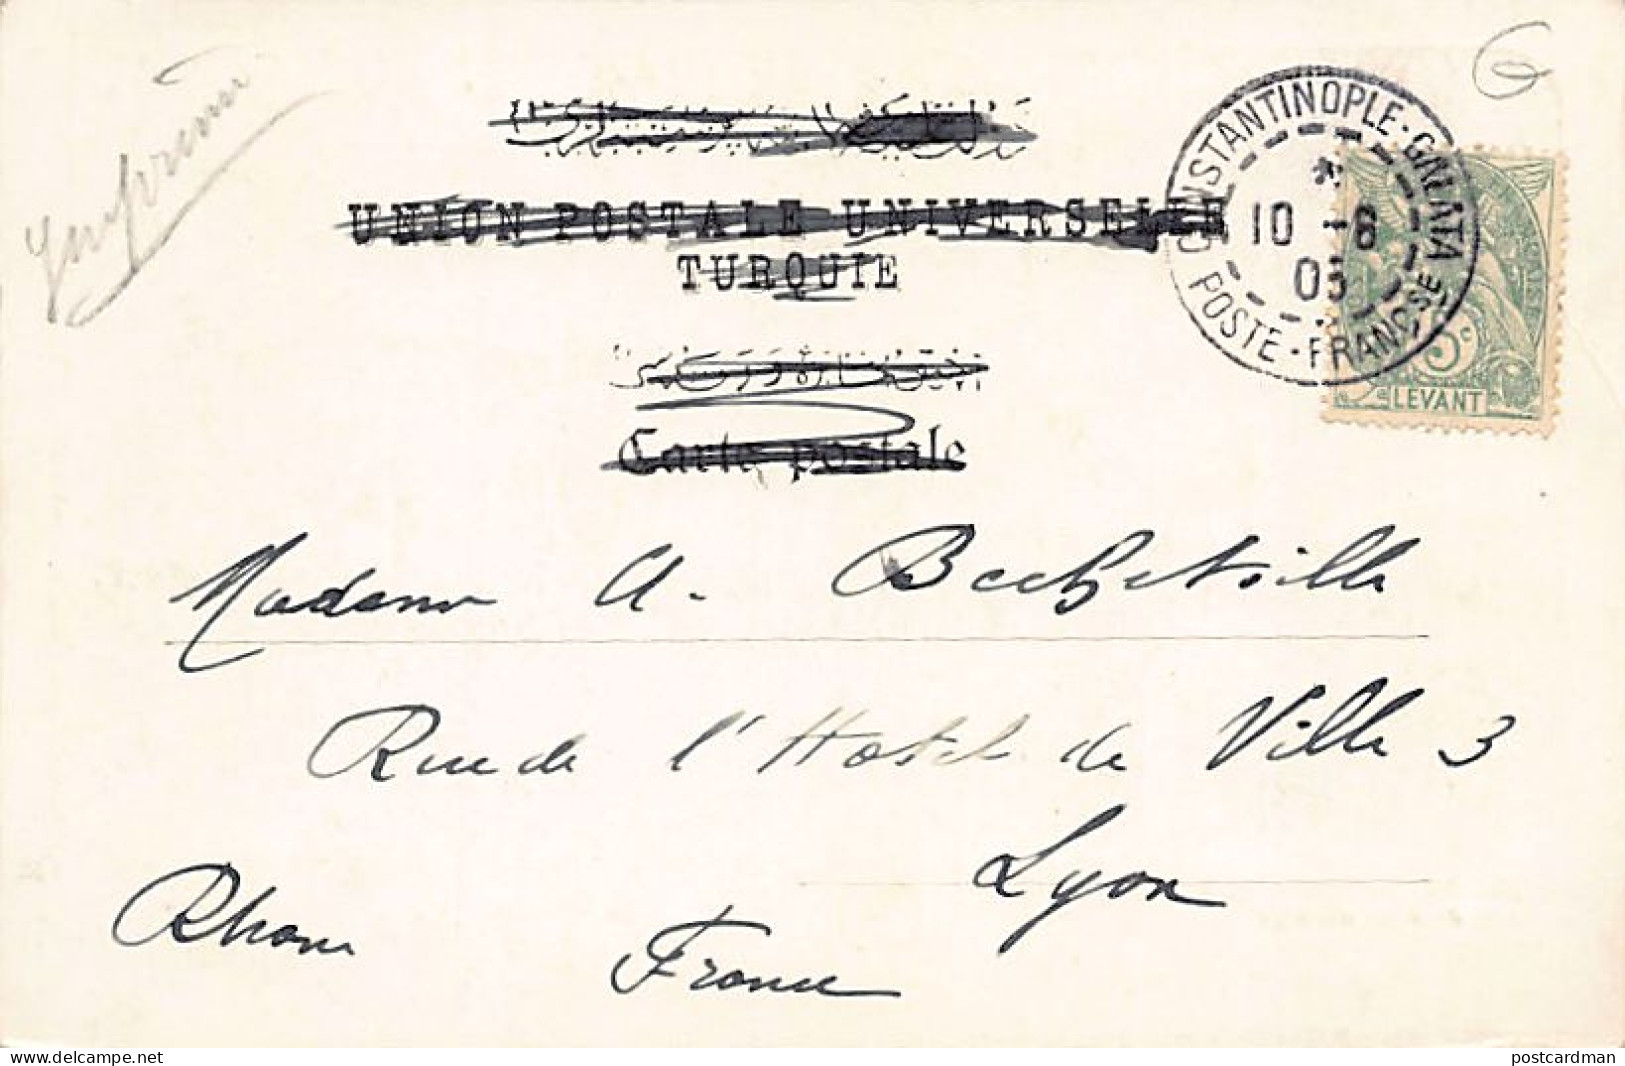 Imprimé
UNION POSTALE UNIVERSELLE
TURQUIE
Carte postale
CONSTANTINOPLE-GALATA
*
10 -6
03
POSTE · FRANÇSE
5c
LEVANT
Madame A.
Rue de l'Hotel de Ville 3
Lyon
Rhone
France
delcampe.net
postcardman